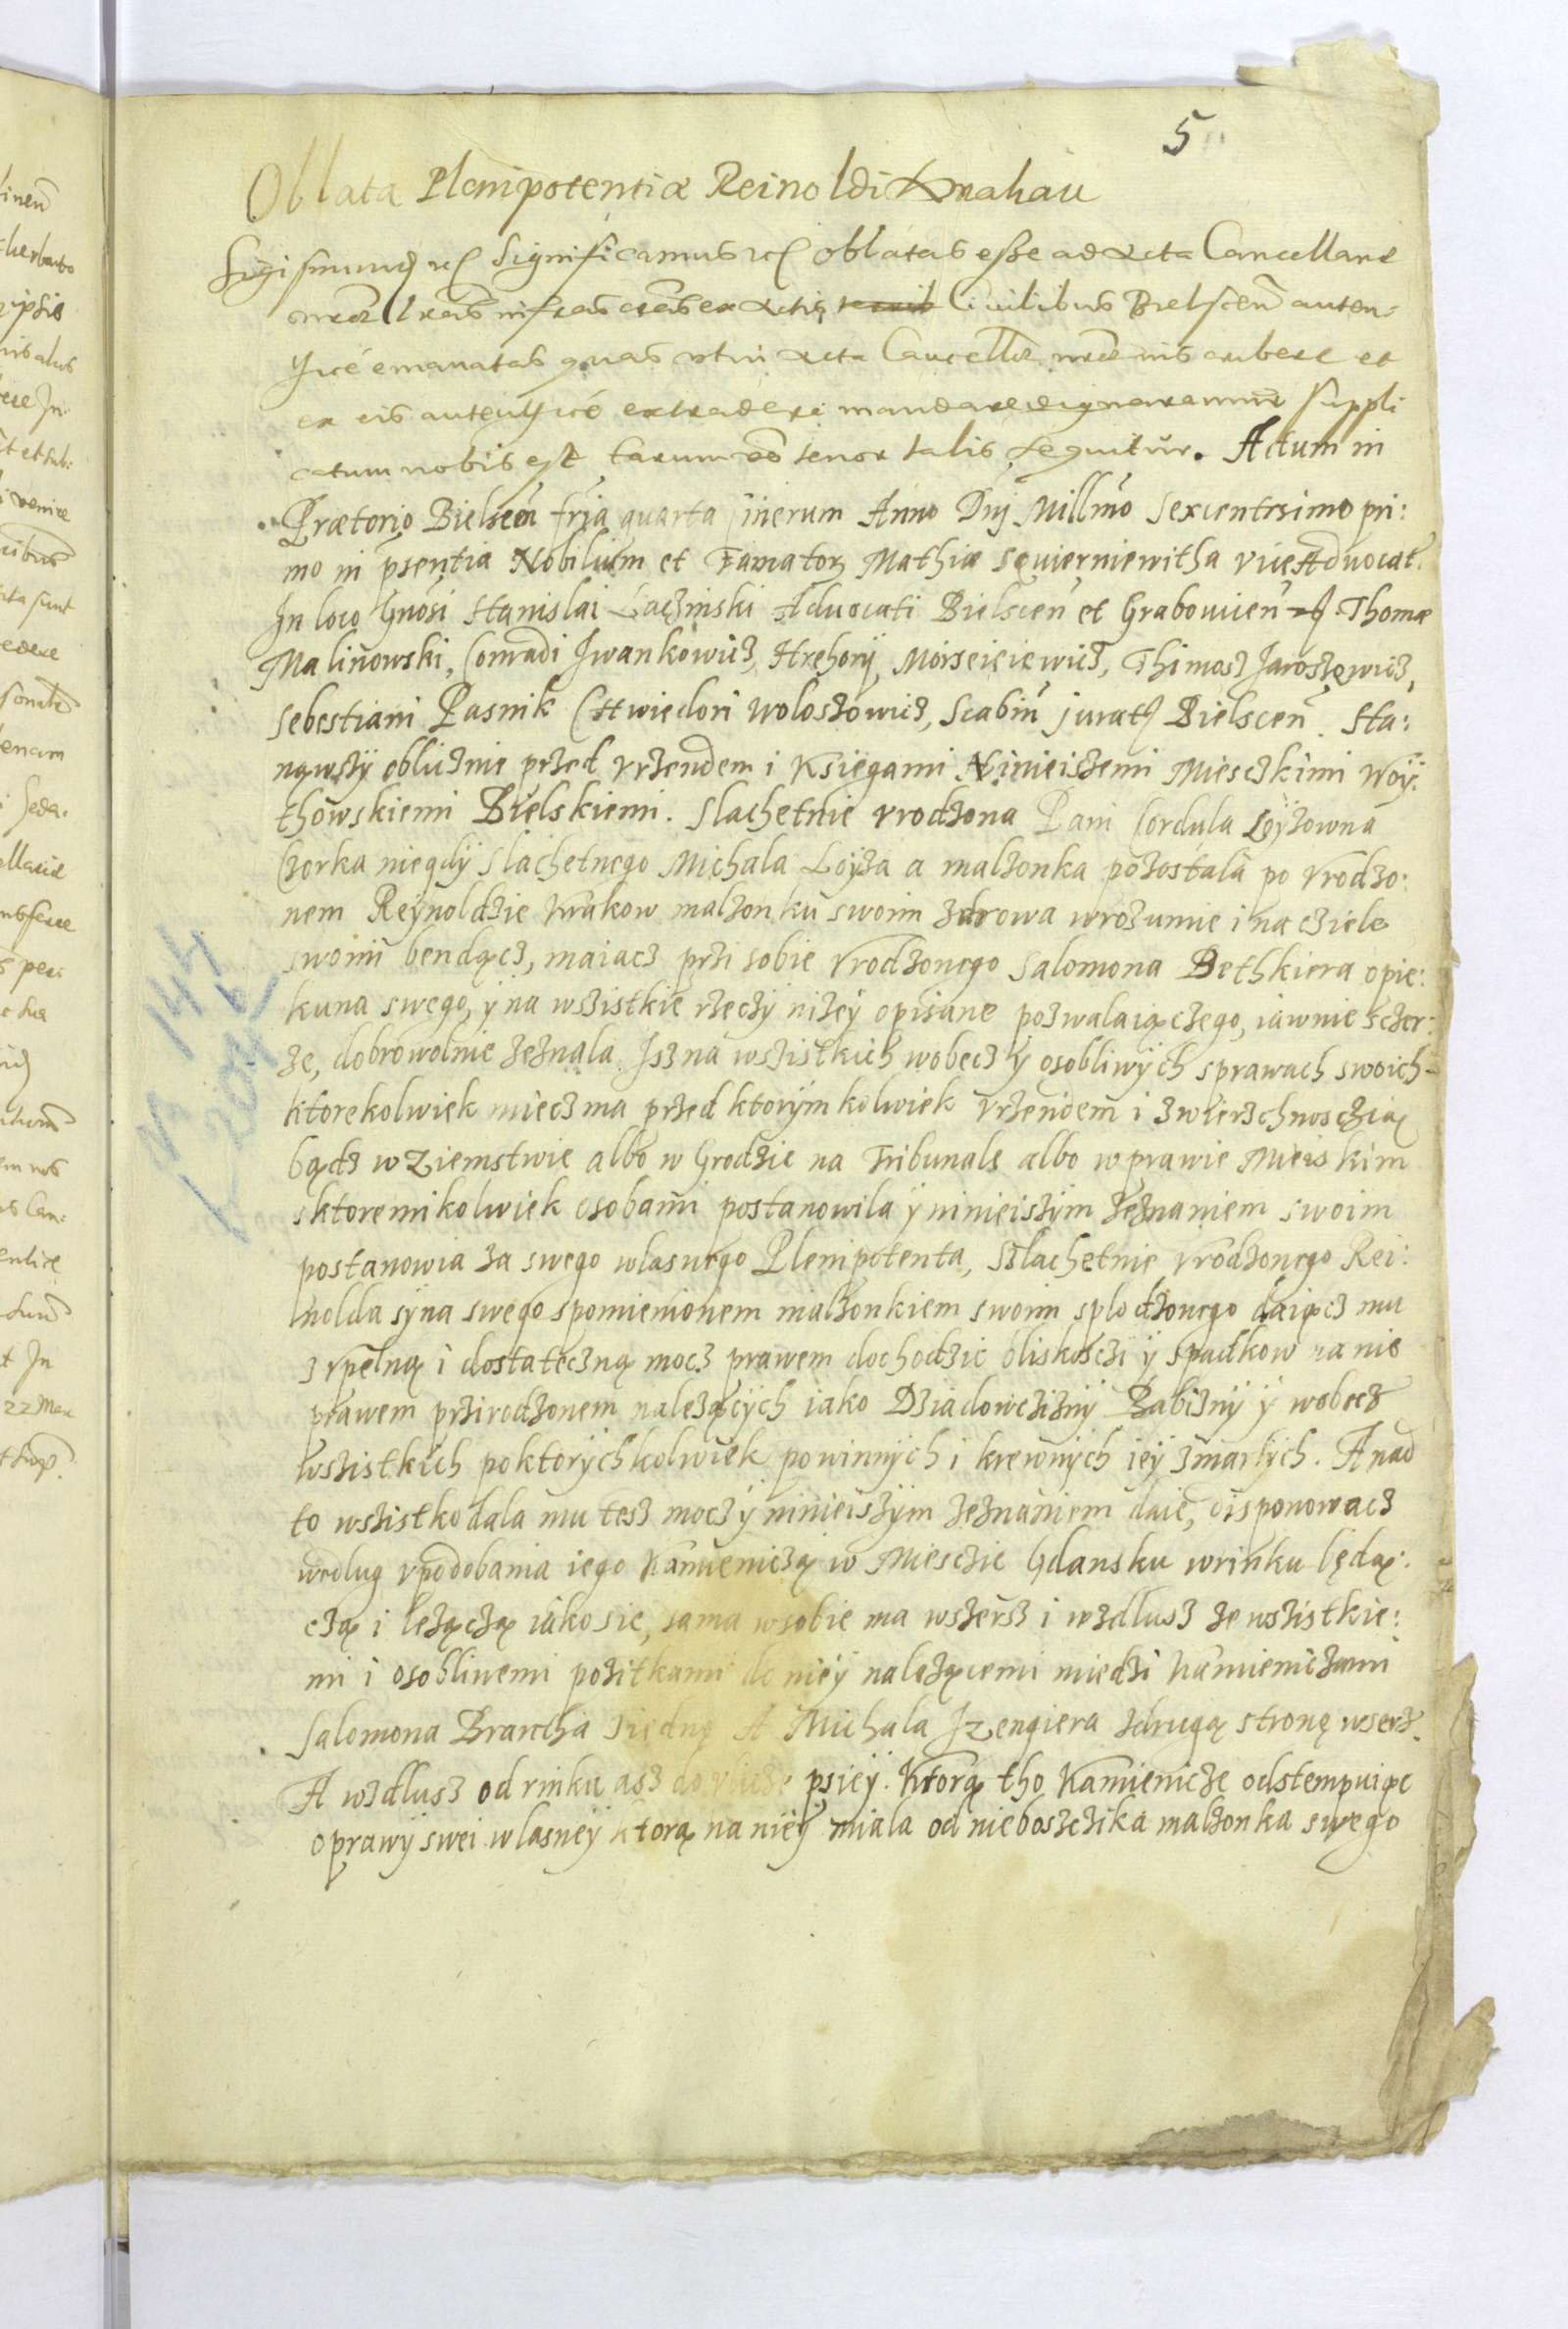 5
Oblata Plenipotentiæ Reinoldi Krakau
Sigismund9 etc Significamus etc oblatas esse ad Acta Cancellariæ
nræ lras infras criâs ex Actis Civilibus Bielscen auten-
tice emanatas quas ut in Acta Cancellæ nræ inscribere et
ex eis autentice extradere mandare dignaremur suppli
catum nobis est tarum vo tenor talis sequitur. Actum in
Prætorio Bielscen fria quarta Cinerum Anno Dnj Millmo Sexcentesimo pri:
mo in pñsentia Nobilium et Famator Mathiæ Squierniewitha viceAdvocat.
In loco Gnosi Stanislai Laczinski Advocati Bielscen et Grabowien Thomæ
Malinowski, Conradi Iwankowicz, Hrehory Moiseiewicz, Thimosz Jaroszewicz,
Sebestiani Pasnik Chwiedori Woloszowicz, Scabin jurat Bielscen. Sta:
nąwszÿ oblicznie przed vrzendem i Księgami Ninieiszemi Miesczkimi Woÿ:
thowskiemi Bielskiemi. Slachetnie vrodzona Pani Cordula Loÿzowna
Czorka niegdÿ Slachetnego Michala Loÿza a malzonka pozostala po vrodzo:
nem Reÿnoldzie Krakow malzonku swoim zdrowa wrozumie i na cziele
swoim bendącz, maiacz przi sobie vrodzonego Salomona Bethkiera opie:
kuna swego, ÿ na wszistkie rzeczÿ nizeÿ opisane pozwalaiączego, iawnie sczer:
ze, dobrowolnie zeznala. Isz na wszistkich wobecz ÿ osobliwÿch sprawach swoich
ktorekolwiek miecz ma przed ktorÿm kolwiek vrzendem i zwierzchnoscziaą
bądz w Ziemstwie albo w Grodzie na Tribunale albo w prawie Mieiskim
sktoremikolwiek osobami postanowila ÿ ninieiszÿm zeznaniem swoim
postanowia za swego wlasnego Plenipotenta, Sslachetnie vrodzonego Rei:
nolda sÿna swego spomienionem malzonkiem swoim splodzonego daiącz mu
zvpelną i dostateczną mocz prawem dochodzic bliskosczi ÿ spadkow na nie
prawem przirodzonem nalezącÿch iako Dziadowcziznÿ Babiznÿ ÿ wobecz
wszistkich poktorÿchkolwiek powinnÿch i krewnÿch ieÿ zmarlÿch. A nad
to wszistko dala mu tesz mocz ÿ ninieiszÿm zeznaniem daie, disponowacz
wedlug vpodobania iego Kamieniczą w Miesczie Gdansku wrinku będą:
czą i lezączą iako sie, sama wsobie ma wszersz i wzdlusz ze wszistkie:
mi i osobliuemi pozitkami do nieÿ nalezącemi miedzi kamieniczami
Salomona Brancha ziedną A Michala Izengiera zdrugą stronę wserz.
A wzdlusz od rinku asz do vlicze psieÿ. Ktorą tho Kamienicze odstempuiąc
oprawÿ swei wlasneÿ ktorą na nieÿ miala od nieboszczika malzonka swego